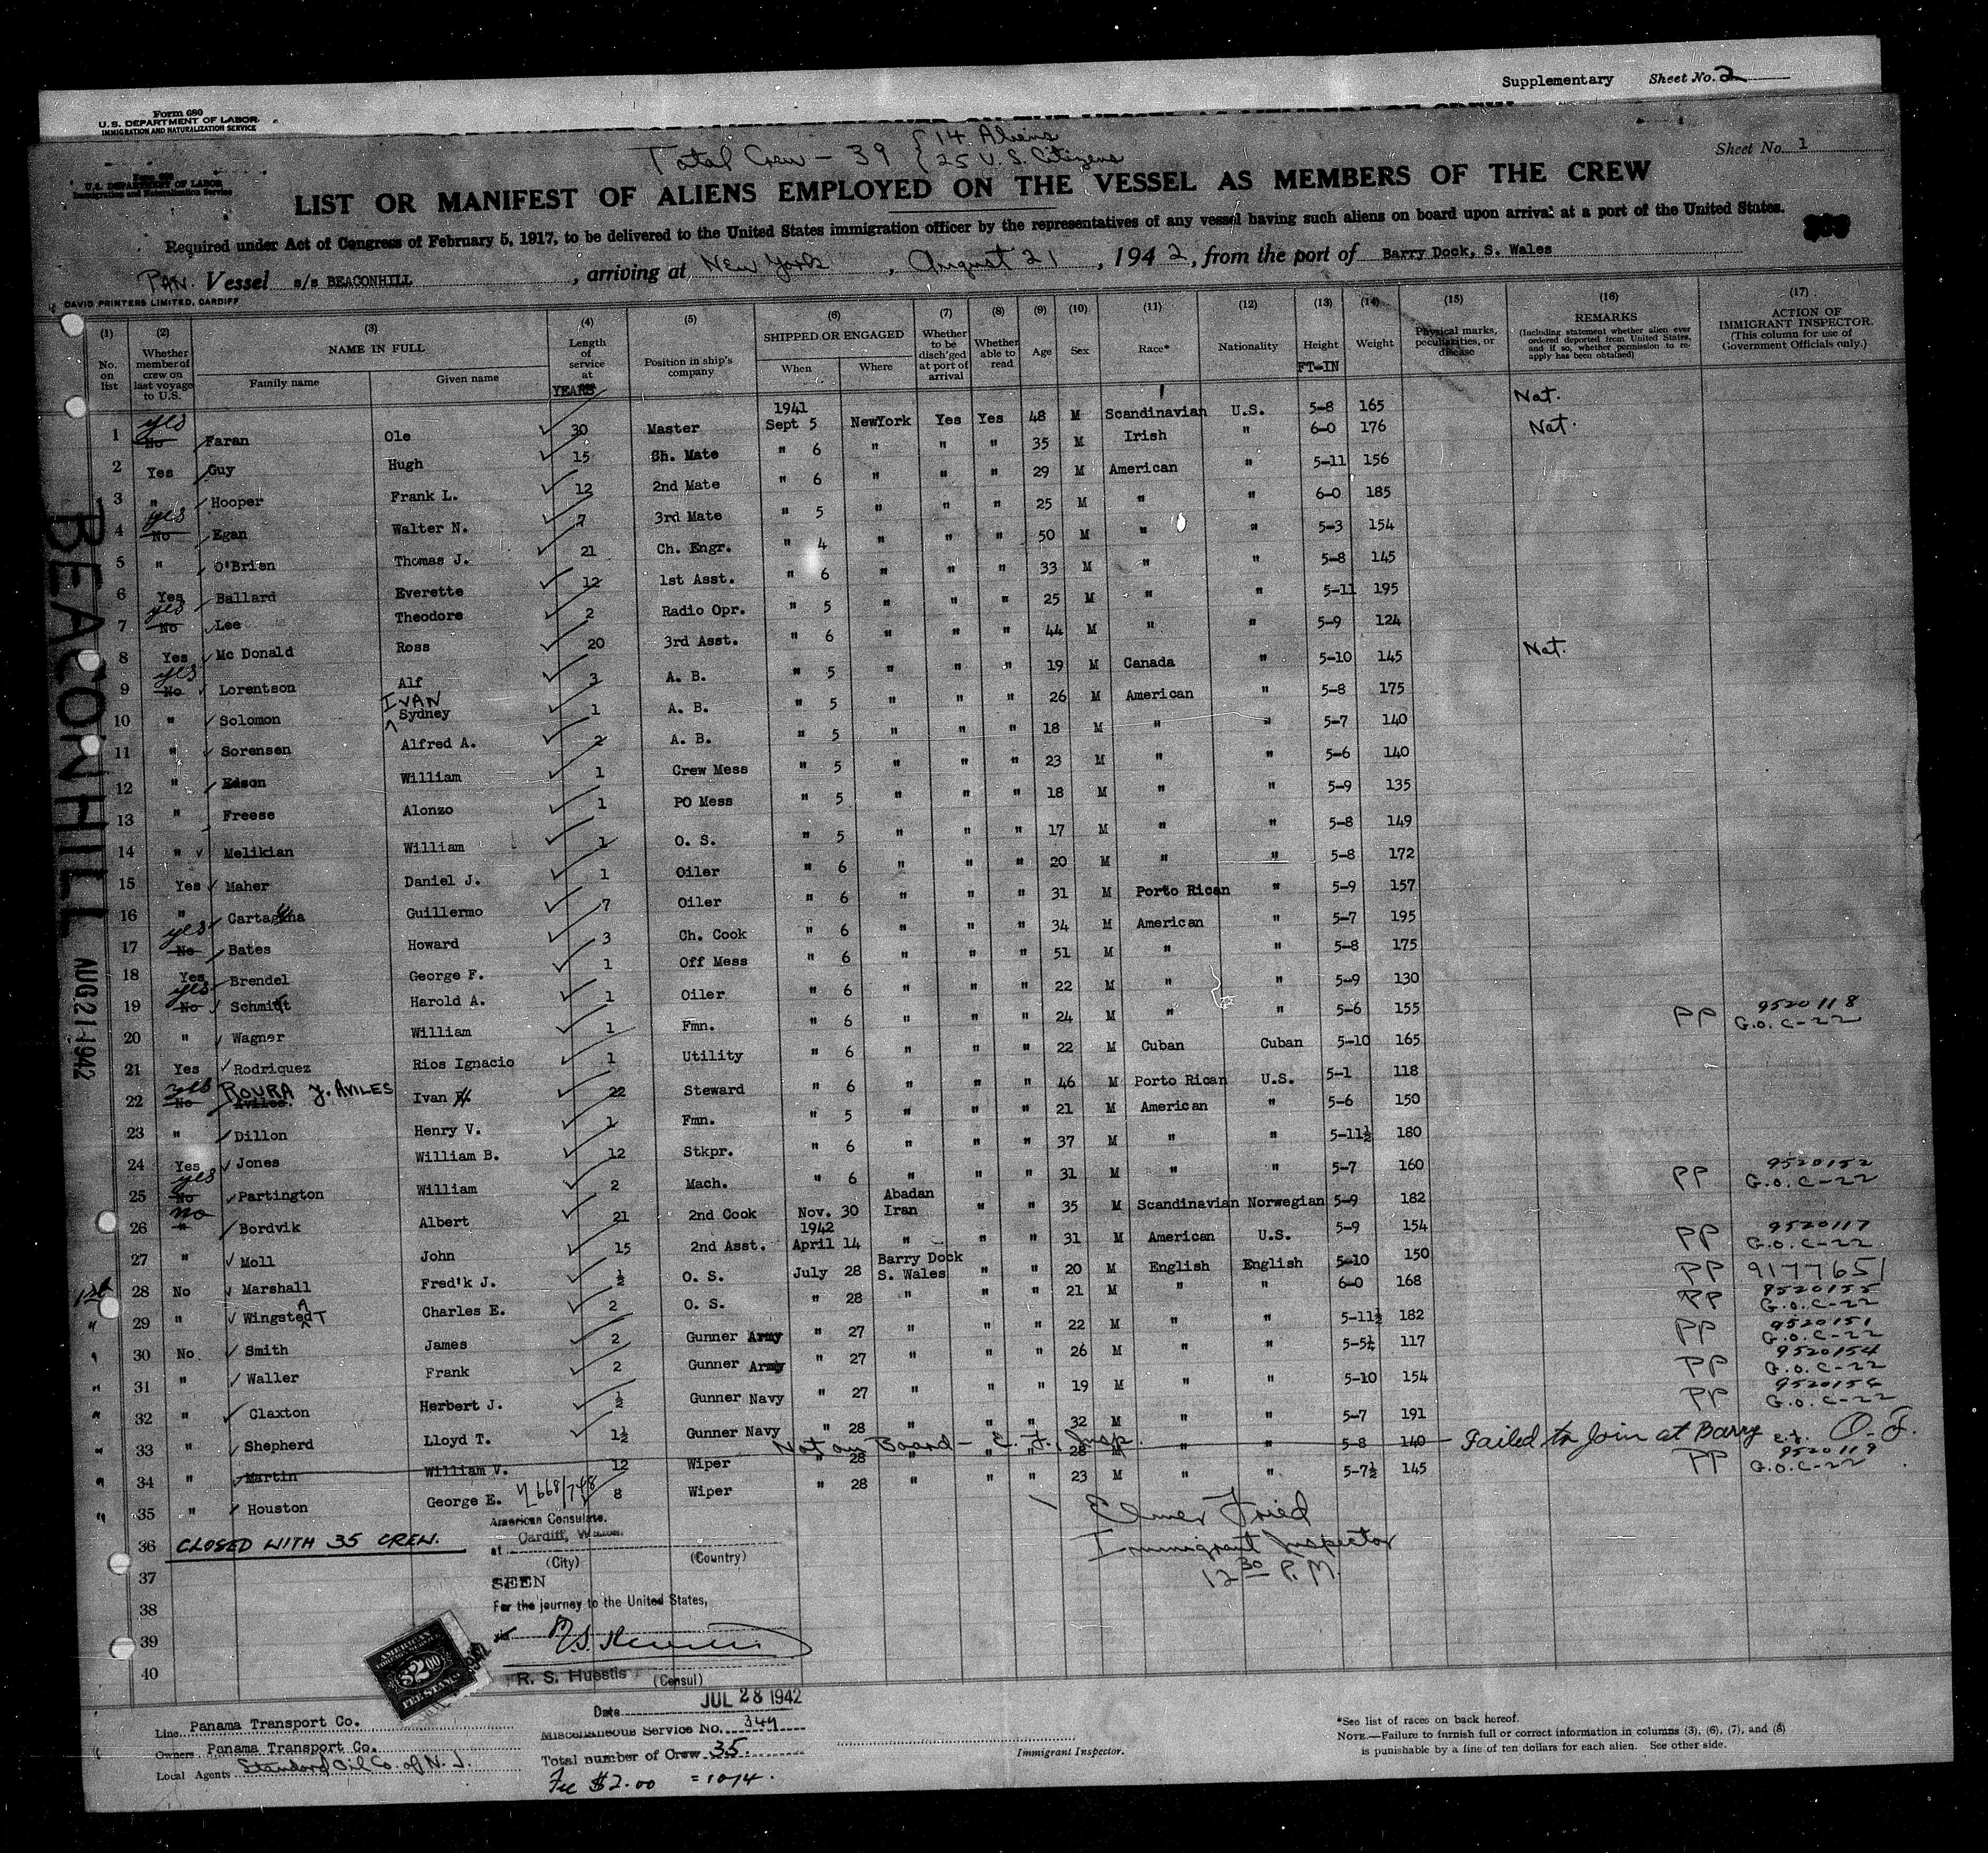 Supplementary Sheet No. 2
Form 680
U.S. DEPARTMENT OF LABOR
IMMIGRATION AND NATURALIZATION SERVICE
Total Crew - 39 { 14 Aliens
{ 25 U.S. Citizens
Sheet No. 1
U.S. DEPARTMENT OF LABOR
Immigration and Naturalization Service
LIST OR MANIFEST OF ALIENS EMPLOYED ON THE VESSEL AS MEMBERS OF THE CREW
Required under Act of Congress of February 5, 1917, to be delivered to the United States immigration officer by the representatives of any vessel having such aliens on board upon arrival at a port of the United States.
PAN. Vessel s/s BEACONHILL, arriving at New York, August 21, 1942, from the port of Barry Dock, S. Wales
DAVID PRINTERS LIMITED, CARDIFF
(1) (2) (3) (4) (5) (6) (7) (8) (9) (10) (11) (12) (13) (14) (15) (16) (17)
No. on list
Whether member of crew on last voyage to U.S.
NAME IN FULL
Family name
Given name
Length of service at
YEARS
Position in ship's company
SHIPPED OR ENGAGED
When
Where
Whether to be disch'ged at port of arrival
Whether able to read
Age
Sex
Race*
Nationality
Height
FT-IN
Weight
Physical marks, peculiarities, or disease
REMARKS
(Including statement whether alien ever ordered deported from United States, and if so, whether permission to re-apply has been obtained)
ACTION OF IMMIGRANT INSPECTOR
(This column for use of Government Officials only.)
1941
1 yes No Faran Ole 30 Master Sept 5 NewYork Yes Yes 48 M Scandinavian U.S. 5-8 165 Nat.
2 Yes Guy Hugh 15 Ch. Mate " 6 " " " 35 M Irish " 6-0 176 Nat.
3 " Hooper Frank L. 12 2nd Mate " 6 " " " 29 M American " 5-11 156
4 yes No Egan Walter N. 7 3rd Mate " 5 " " " 25 M " " 6-0 185
5 " O'Brien Thomas J. 21 Ch. Engr. " 4 " " " 50 M " " 5-3 154
6 Yes Ballard Everette 12 1st Asst. " 6 " " " 33 M " " 5-8 145
7 yes No Lee Theodore 2 Radio Opr. " 5 " " " 25 M " " 5-11 195
8 Yes Mc Donald Ross 20 3rd Asst. " 6 " " " 44 M " " 5-9 124
9 yes No Lorentson Alf 3 A. B. " 5 " " " 19 M Canada " 5-10 145 Nat.
10 " Solomon IVAN Sydney 1 A. B. " 5 " " " 26 M American " 5-8 175
11 " Sorensen Alfred A. 2 A. B. " 5 " " " 18 M " " 5-7 140
12 " Edson William 1 Crew Mess " 5 " " " 23 M " " 5-6 140
13 " Freese Alonzo 1 PO Mess " 5 " " " 18 M " " 5-9 135
14 " Melikian William 1 O. S. " 5 " " " 17 M " " 5-8 149
15 Yes Maher Daniel J. 1 Oiler " 6 " " " 20 M " " 5-8 172
16 " Cartagena Guillermo 7 Oiler " 6 " " " 31 M Porto Rican " 5-9 157
17 yes No Bates Howard 3 Ch. Cook " 6 " " " 34 M American " 5-7 195
18 Yes Brendel George F. 1 Off Mess " 6 " " " 51 M " " 5-8 175
19 yes No Schmidt Harold A. 1 Oiler " 6 " " " 22 M " " 5-9 130
20 " Wagner William 1 Fmn. " 6 " " " 24 M " " 5-6 155
21 Yes Rodriquez Rios Ignacio 1 Utility " 6 " " " 22 M Cuban Cuban 5-10 165 PP 9520118 G.O. C-22
22 yes No ROURA y. AVILES Aviles Ivan R. 22 Steward " 6 " " " 46 M Porto Rican U.S. 5-1 118
23 " Dillon Henry V. 1 Fmn. " 5 " " " 21 M American " 5-6 150
24 Yes Jones William B. 12 Stkpr. " 6 " " " 37 M " " 5-11½ 180
25 yes No Partington William 2 Mach. " 6 " " " 31 M " " 5-7 160
26 no " Bordvik Albert 21 2nd Cook Nov. 30 Abadan Iran " " 35 M Scandinavian Norwegian 5-9 182 PP 9520152 G.O. C-22
1942
27 " Moll John 15 2nd Asst. April 14 " " " 31 M American U.S. 5-9 154
28 No Marshall Fred'k J. ½ O. S. July 28 Barry Dock S. Wales " " 20 M English English 5-10 150 PP 9520117 G.O. C-22
" 29 " WingsteAdT Charles E. 2 O. S. " 28 " " " 21 M " " 6-0 168 PP 9177651
" 30 No Smith James 2 Gunner Army " 27 " " " 22 M " " 5-11½ 182 PP 9520155 G.O. C-22
" 31 " Waller Frank 2 Gunner Army " 27 " " " 26 M " " 5-5½ 117 PP 9520151 G.O. C-22
" 32 " Claxton Herbert J. ½ Gunner Navy " 27 " " " 19 M " " 5-10 154 PP 9520154 G.O. C-22
" 33 " Shepherd Lloyd T. 1½ Gunner Navy " 28 " " " 32 M " " 5-7 191 PP 9520156 G.O. C-22
" 34 " Martin William V. 12 Wiper " 28 " " " 28 M " " 5-8 140 Not on Board - E. F., Insp. Failed to Join at Barry E.F. O.F.
" 35 " Houston George E. 8 Wiper " 28 " " " 23 M " " 5-7½ 145 PP 9520119 G.O. C-22
36 CLOSED WITH 35 CREW.
37
38
39
40
BEACONHILL
AUG 21 1942
Elmer Fried
Immigrant Inspector
12 30 P.M.
American Consulate.
at Cardiff, Wales.
(City) (Country)
SEEN
For the journey to the United States,
R. S. Huestis (Consul)
AMERICAN
$2.00
FEE STAMP
Date JUL 28 1942
Miscellaneous Service No. 349
Total number of Crew 35.
Fee $2.00 = 10/4.
Line Panama Transport Co.
Owners Panama Transport Co.
Local Agents Standard Oil Co. of N. J.
Immigrant Inspector.
*See list of races on back hereof.
NOTE.—Failure to furnish full or correct information in columns (3), (6), (7), and (8)
is punishable by a fine of ten dollars for each alien. See other side.